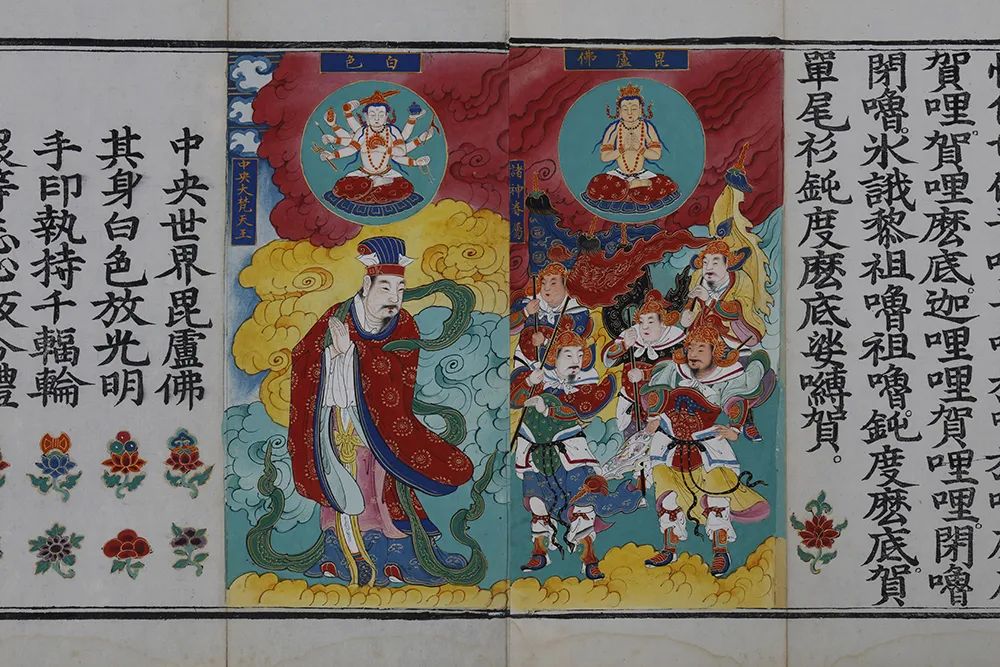 賀哩。賀哩麽底。迦哩哩賀。哩哩閉嚕
閉嚕。氷誐黎。祖嚕祖嚕。鈍度麽底賀。
單尾衫。鈍度麽底娑嚩賀。
毘盧佛
諸神眷屬
白色
中央大梵天王
中央世界毘盧佛
其身白色放光明
手印執持千輻輪